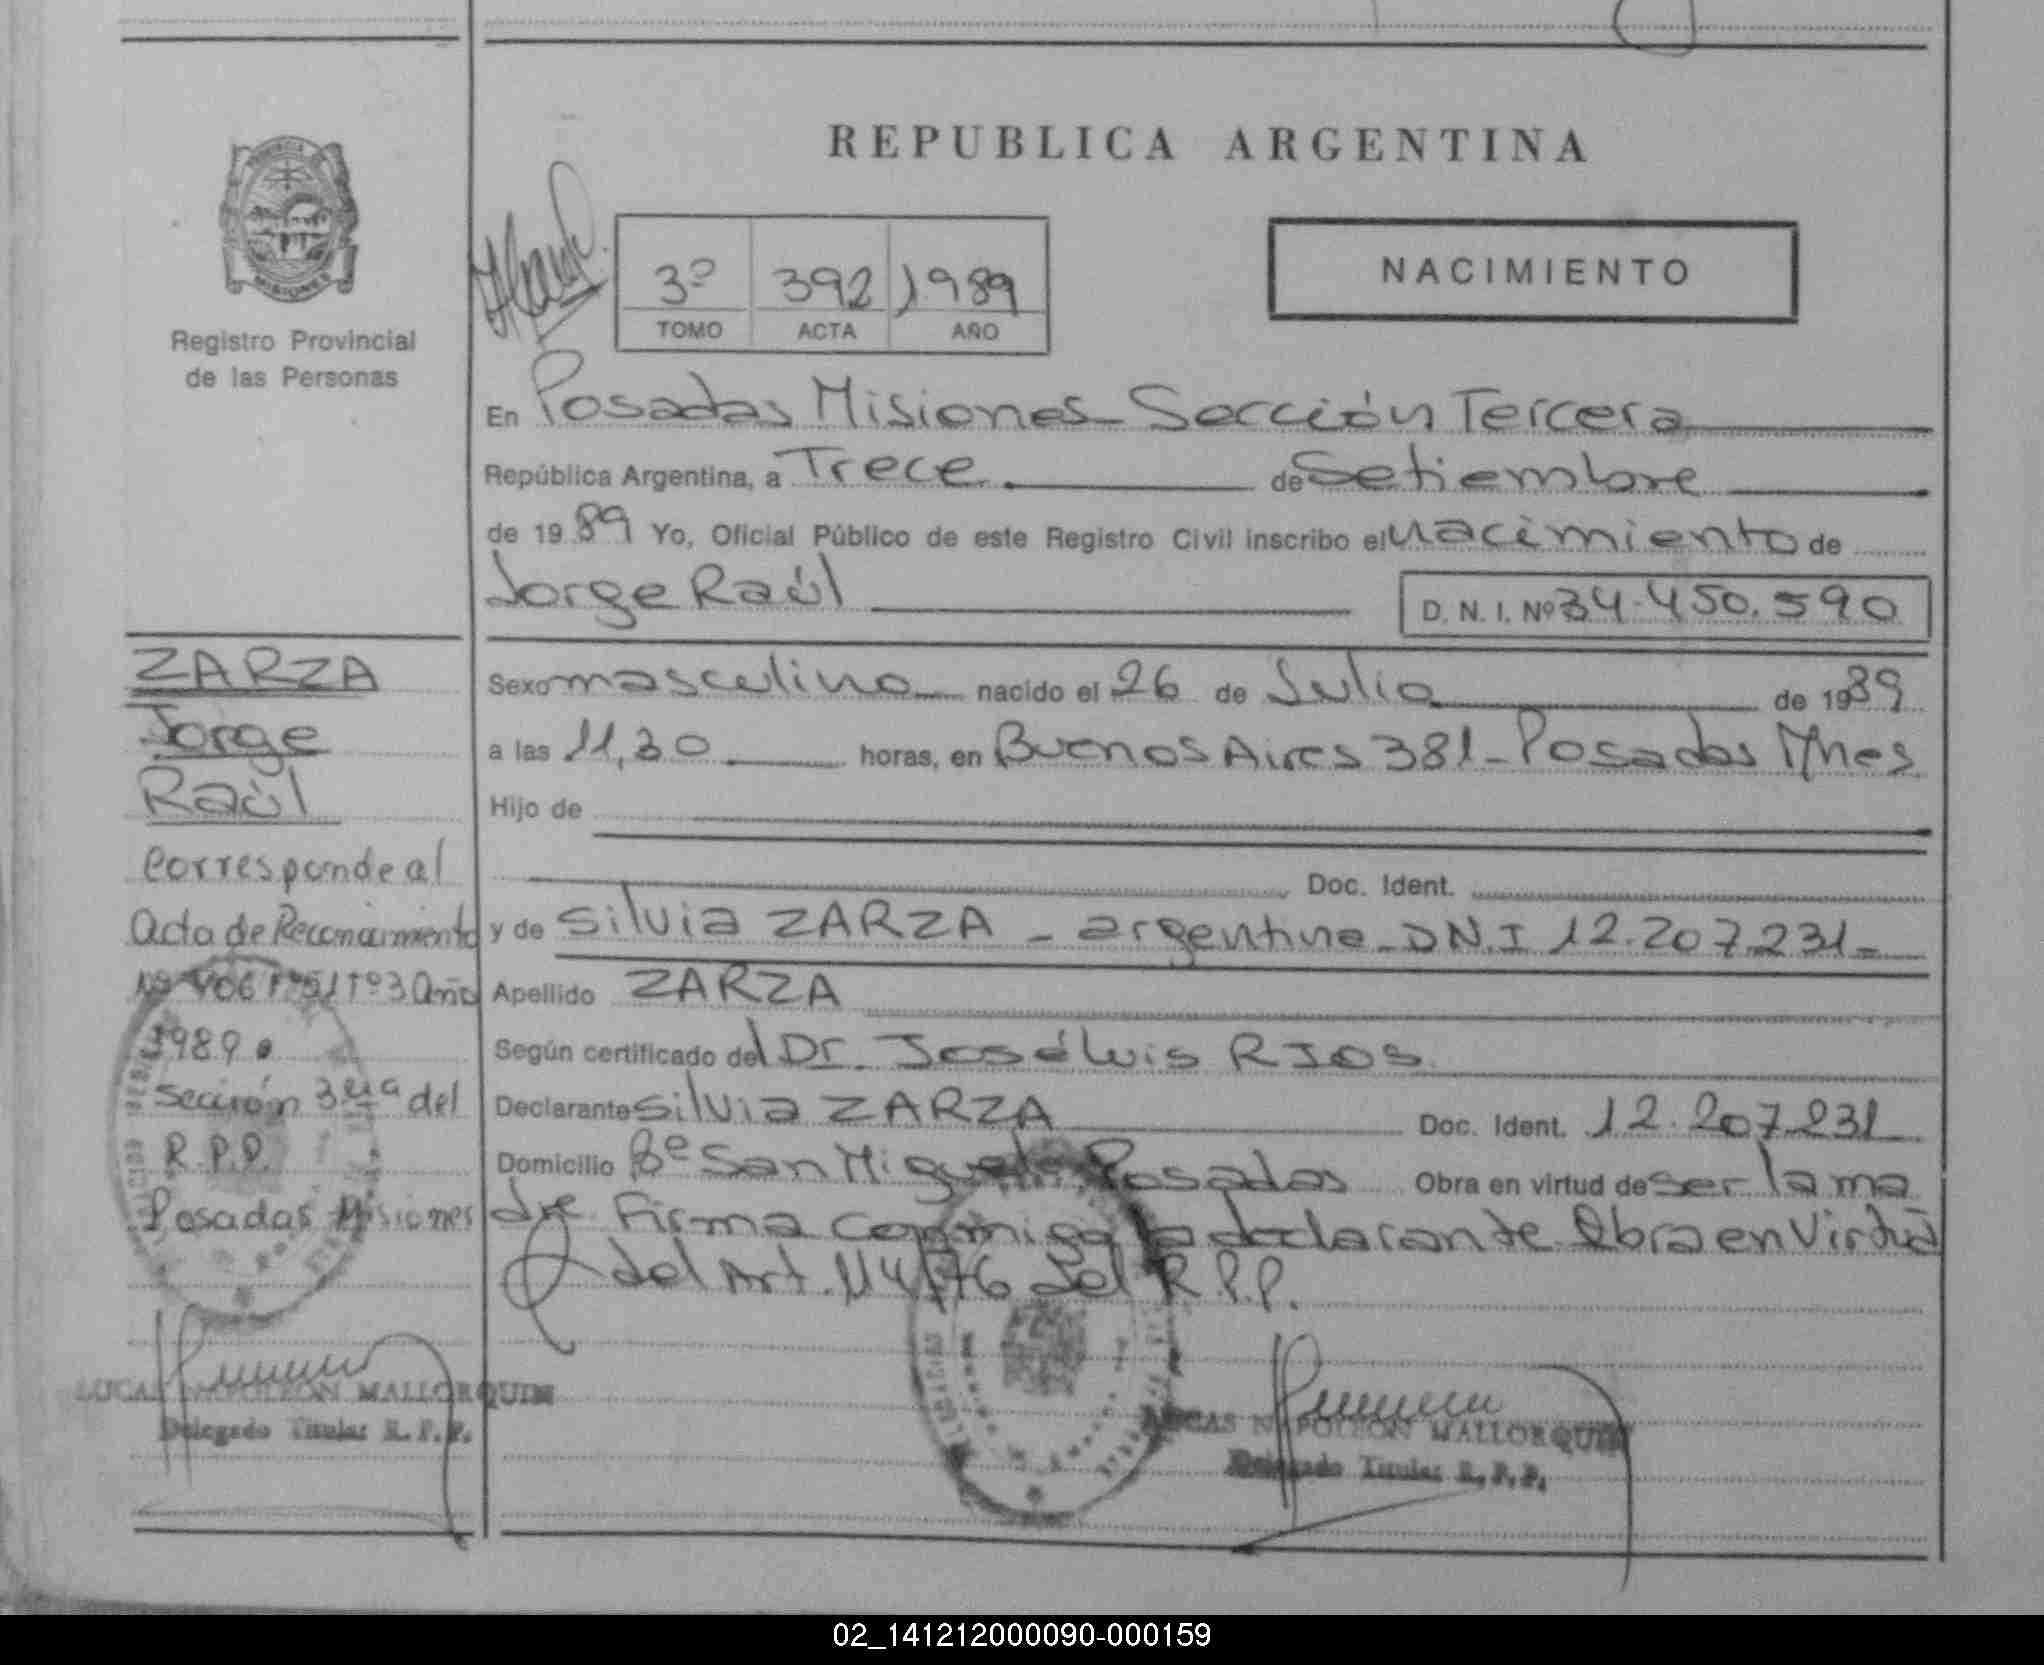 REPUBLICA ARGENTINA
PROVINCIA DE
MISIONES
Registro Provincial
de las Personas
3º 392 1989
TOMO ACTA AÑO
NACIMIENTO
En Posadas Misiones - Sección Tercera
República Argentina, a Trece de Setiembre
de 1989 Yo, Oficial Público de este Registro Civil inscribo el nacimiento de
Jorge Raúl
D. N. I. Nº 34.450.590
ZARZA
Jorge
Raúl
Corresponde al
Acta de Reconocimiento
Nº 406 Fº 51 Tº 3 Año
1989.
Sección 3era del
R.P.P.
Posadas Misiones
LUCAS NAPOLEON MALLORQUIN
Delegado Titular R. P. P.
Sexo masculino nacido el 26 de Julio de 1989
a las 11,30 horas, en Buenos Aires 381 - Posadas Mnes
Hijo de
Doc. Ident.
y de Silvia ZARZA - argentina - DN.I 12.207.231 -
Apellido ZARZA
Según certificado del Dr. José Luis RIOS
Declarante Silvia ZARZA Doc. Ident. 12.207.231
Domicilio Bº San Miguel - Posadas Obra en virtud de ser la ma
dre. Firma conmigo la declarante. Obra en Virtud
del Art. 114/76 del R.P.P.
LUCAS NAPOLEON MALLORQUIN
Delegado Titular R. P. P.
02_141212000090-000159